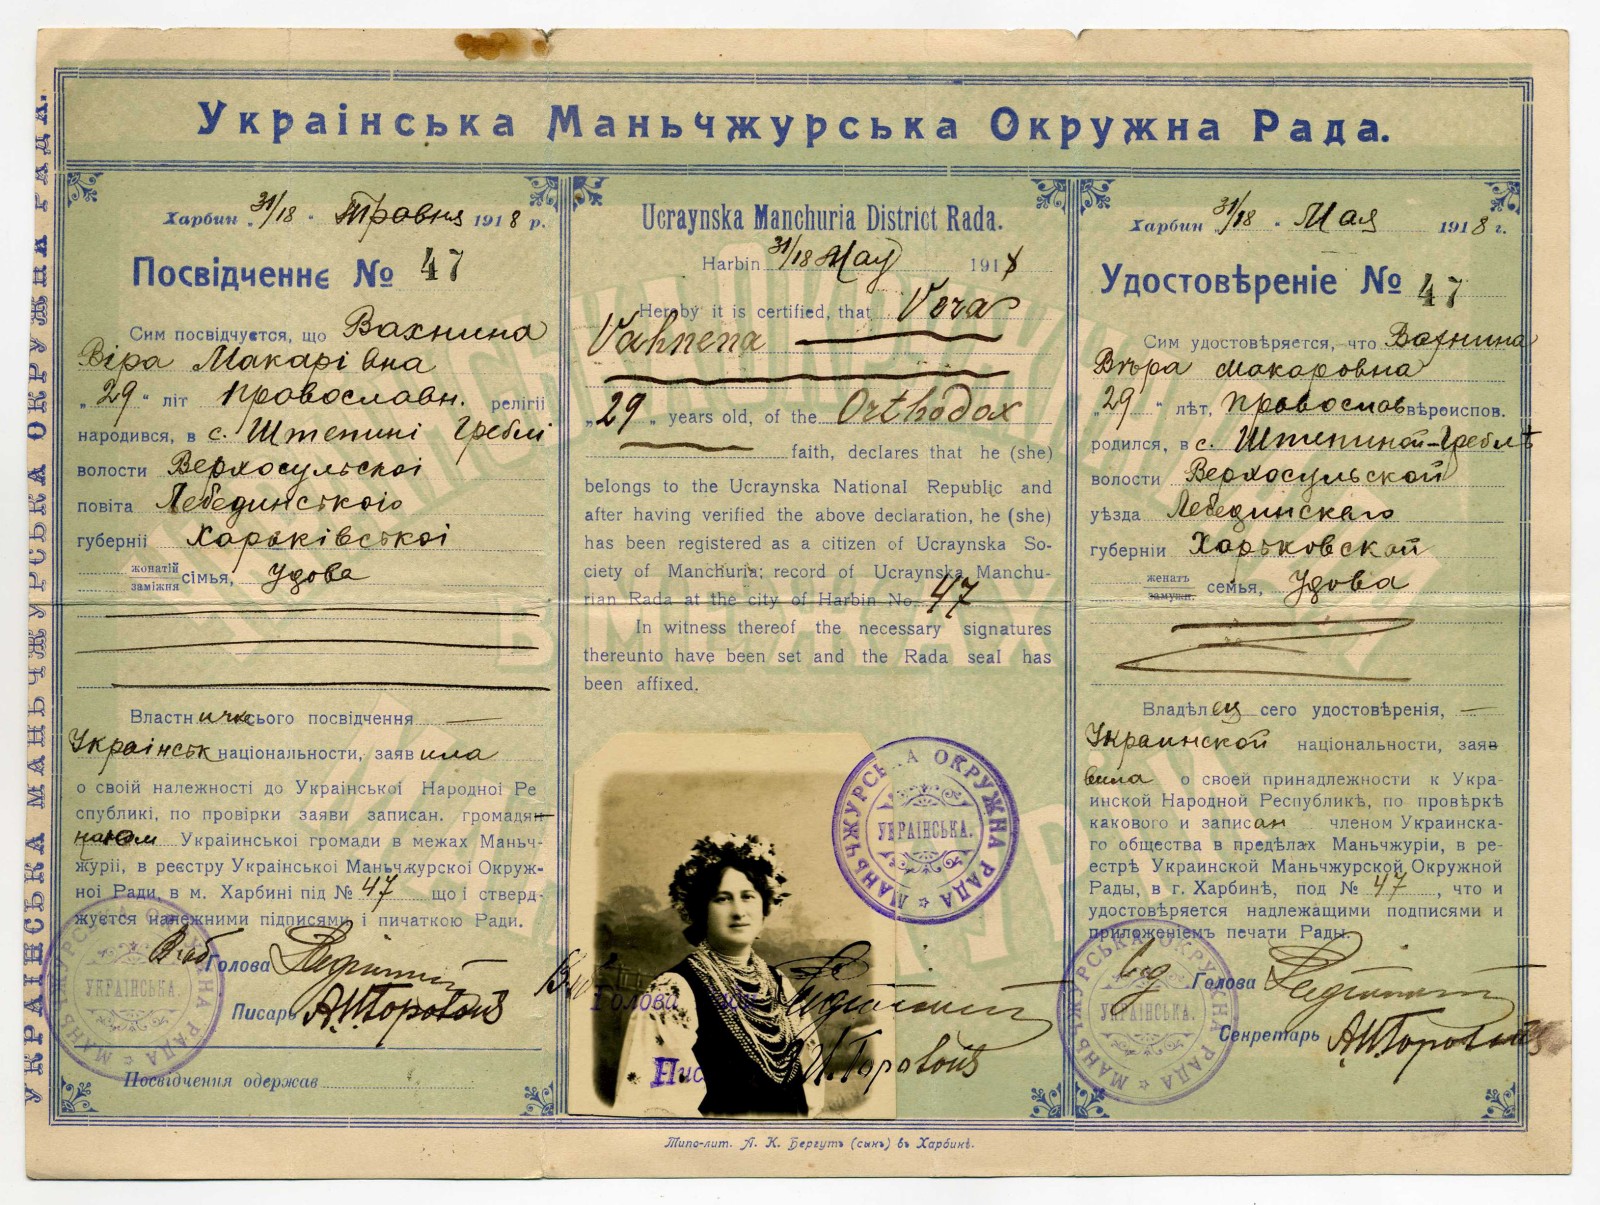 Украінська Маньчжурська Окружна Рада.
УКРАІНСЬКА МАНЬЧЖУРСЬКА ОКРУЖНА РАДА.
Харбин 31/18 Травня 1918 р.
Посвідченнє № 47
Сим посвідчуется, що Вахнина
Віра Макарівна
„29“ літ православн. релігіі
народився, в с. Штепині Греблі
волости Верхосульскоі
повіта Лебединського
губерніі Харьківськоі
жонатій
заміжня сімья, Удова
Властничка сього посвідчення
Украінськ національности, заявила
о своій належності до Украінськоі Народноі Ре
спубликі, по провірки заяви записан. громадян-
Украіинськоі громади в межах Маньч-
журіі, в реєстру Украінськоі Маньчжурскоі Окруж-
ноі Ради, в м. Харбині під № 47 що і стверд-
жуется належними підписями і пичаткою Ради.
Голова
Писарь
Посвідчення одержав
Ucraynska Manchuria District Rada.
Harbin 31/18 May 1918
Hereby it is certified, that Vera
Vahnena
„29„ years old, of the Orthodox
faith, declares that he (she)
belongs to the Ucraynska National Republic and
after having verified the above declaration, he (she)
has been registered as a citizen of Ucraynska So-
ciety of Manchuria; record of Ucraynska Manchu-
rian Rada at the city of Harbin No. 47
In witness thereof the necessary signatures
thereunto have been set and the Rada seal has
been affixed.
МАНЬЧЖУРСЬКА ОКРУЖНА РАДА
УКРАІНСЬКА.
Голова Ради
Пис
Харбин 31/18 Мая 1918 г.
Удостовѣреніе № 47
Сим удостовѣряется, что Вахнина
Вѣра Макаровна
„29“ лѣт, православ вѣроиспов.
родился, в с. Штепиной-Греблѣ
волости Верхосульской
уѣзда Лебединскаго
губерніи Харьковской
женатъ
замужн. семья, Удова
Владѣлец сего удостовѣренія,
Украинской національности, заяв
вила о своей принадлежности к Укра-
инской Народной Республикѣ, по провѣркѣ
какового и записан членом Украинска-
го общества в предѣлах Маньчжуріи, в ре-
естрѣ Украинской Маньчжурской Окружной
Рады, в г. Харбинѣ, под № 47, что и
удостовѣряется надлежащими подписями и
приложеніем печати Рады.
Голова
Секретарь
МАНЬЧЖУРСЬКА ОКРУЖНА РАДА
УКРАІНСЬКА.
МАНЬЧЖУРСЬКА ОКРУЖНА РАДА
УКРАІНСЬКА.
Типо-лит. Л. К. Бергутъ (сынъ) въ Харбинѣ.